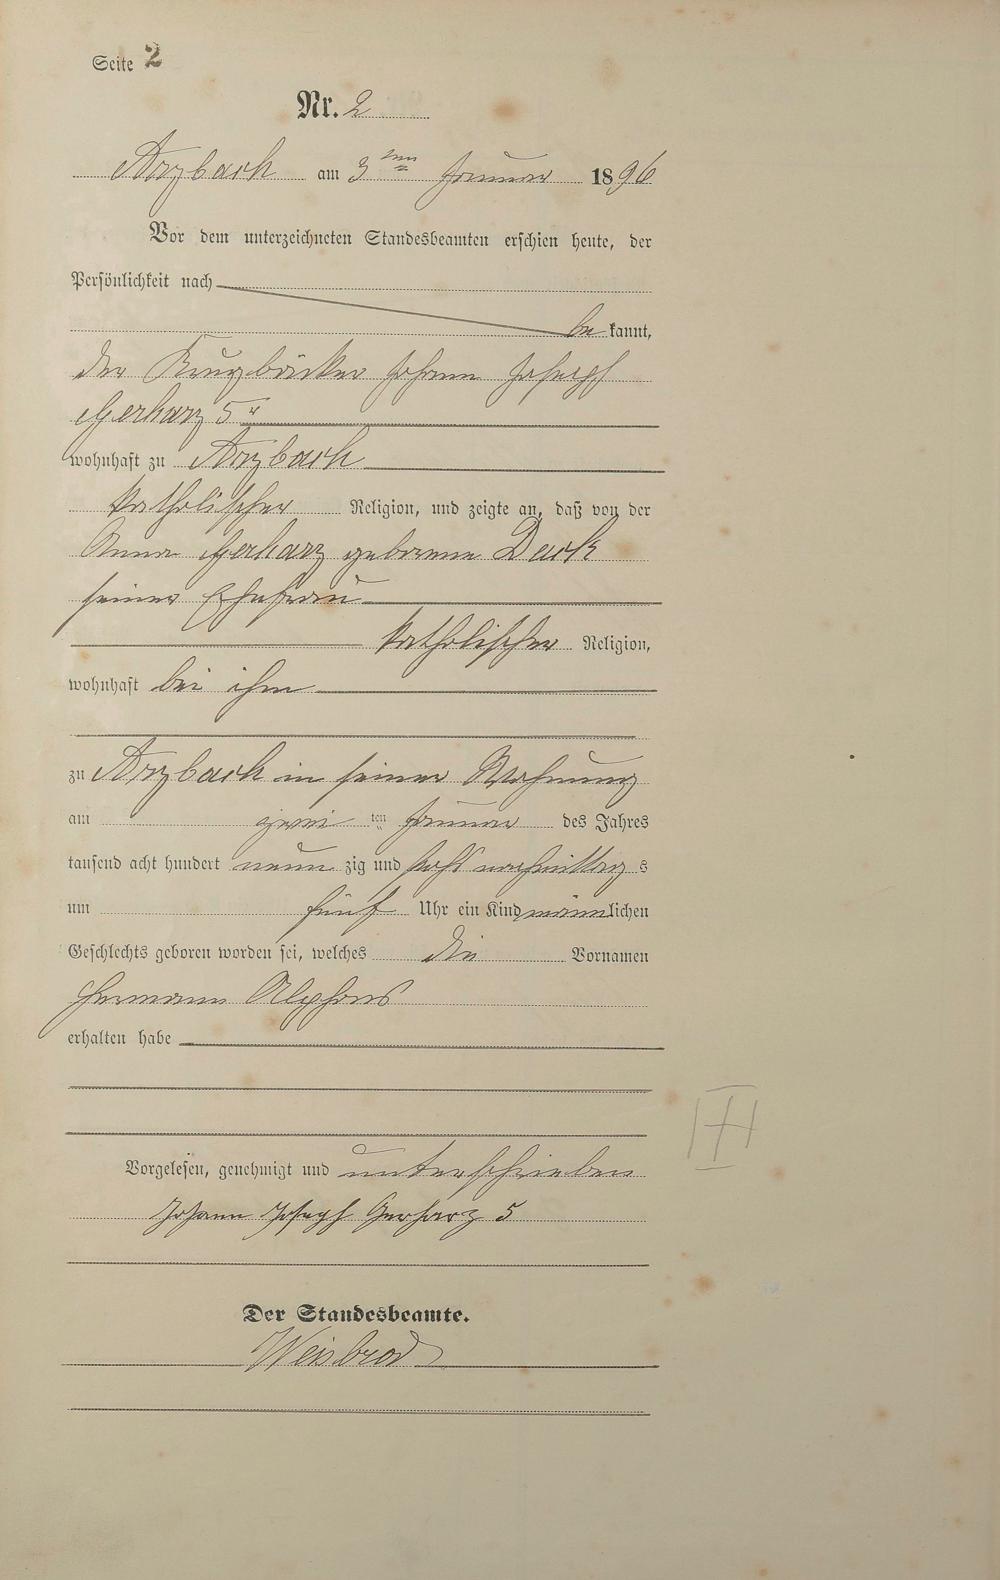 Seite 2
Nr. 2
Arzbach am 3ten Januar 1896
Vor dem unterzeichneten Standesbeamten erschien heute, der
Persönlichkeit nach
bekannt,
der Krugbäcker Johann Joseph
Gerharz 5r
wohnhaft zu Arzbach
katholischer Religion, und zeigte an, daß von der
Anna Gerharz geborene
seiner Ehefrau
katholischer Religion,
wohnhaft bei ihm
zu Arzbach in seiner Wohnung
am zweiten Januar des Jahres
tausend acht hundert neunzig und sechs nachmittags
um fünf Uhr ein Kind männlichen
Geschlechts geboren worden sei, welches die Vornamen
Hermann Alphons
erhalten habe
Vorgelesen, genehmigt und unterschrieben
Johann Joseph Gerharz 5
Der Standesbeamte.
Weisbrod